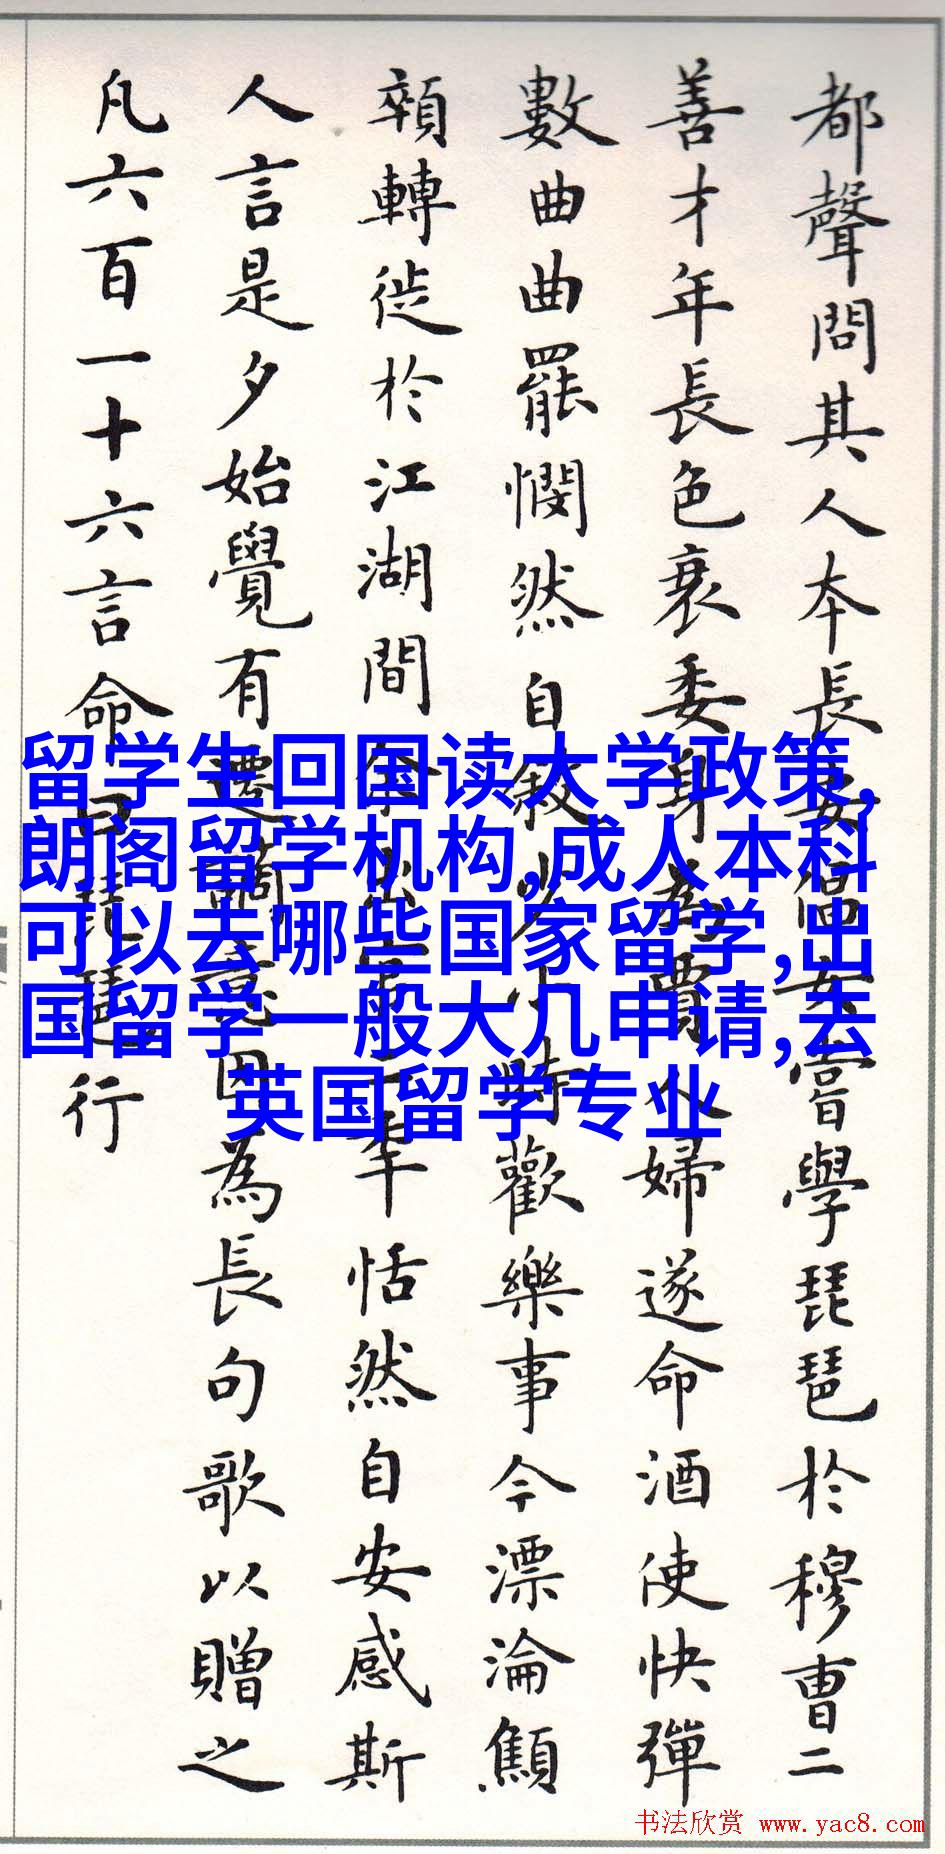 都聲問其人本長安倡女嘗學琵琶於穆曹二
善才年長色衰委身為賈人婦遂命酒使快彈
數曲曲罷憫然自敘少小時歡樂事今漂淪顦
顇轉徙於江湖間余出官二年恬然自安感斯
人言是夕始覺有遷謫意因為長句歌以贈之
凡六百一十六言命曰琵琶行
留学生回国读大学政策,
朗阁留学机构,成人本科
可以去哪些国家留学,出
国留学一般大几申请,去
英国留学专业
书法欣赏 www.yac8.com